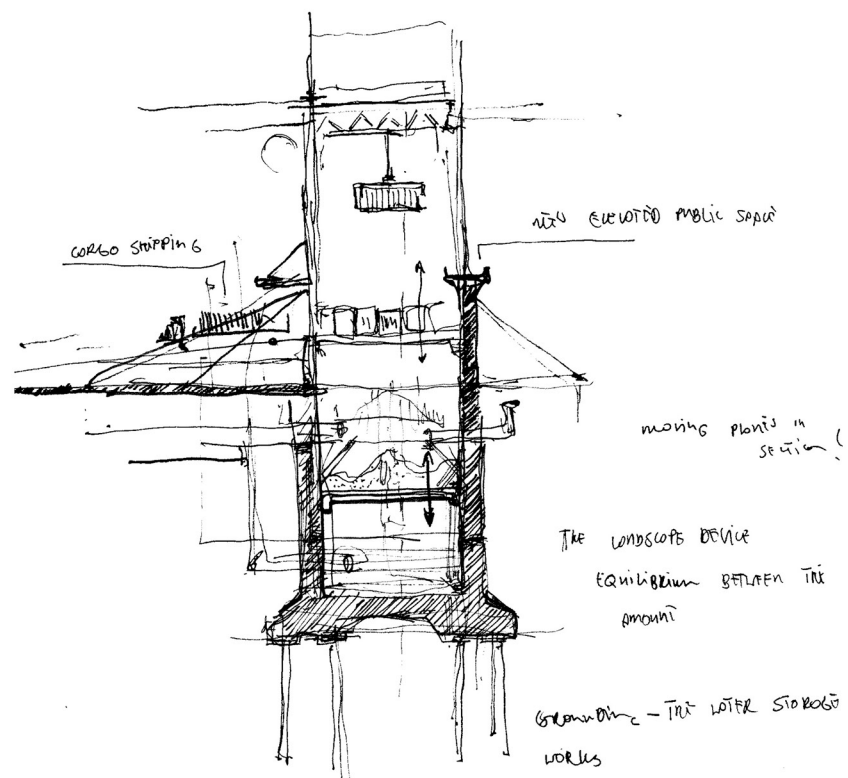 CARGO SHIPPING
NEW ELEVATED PUBLIC SPACE
MOVING PLANTS IN
SECTION!
THE LANDSCAPE DEVICE
EQUILIBRIUM BETWEEN THE
AMOUNT
GROUNDING – THE WATER STORAGE
WORKS